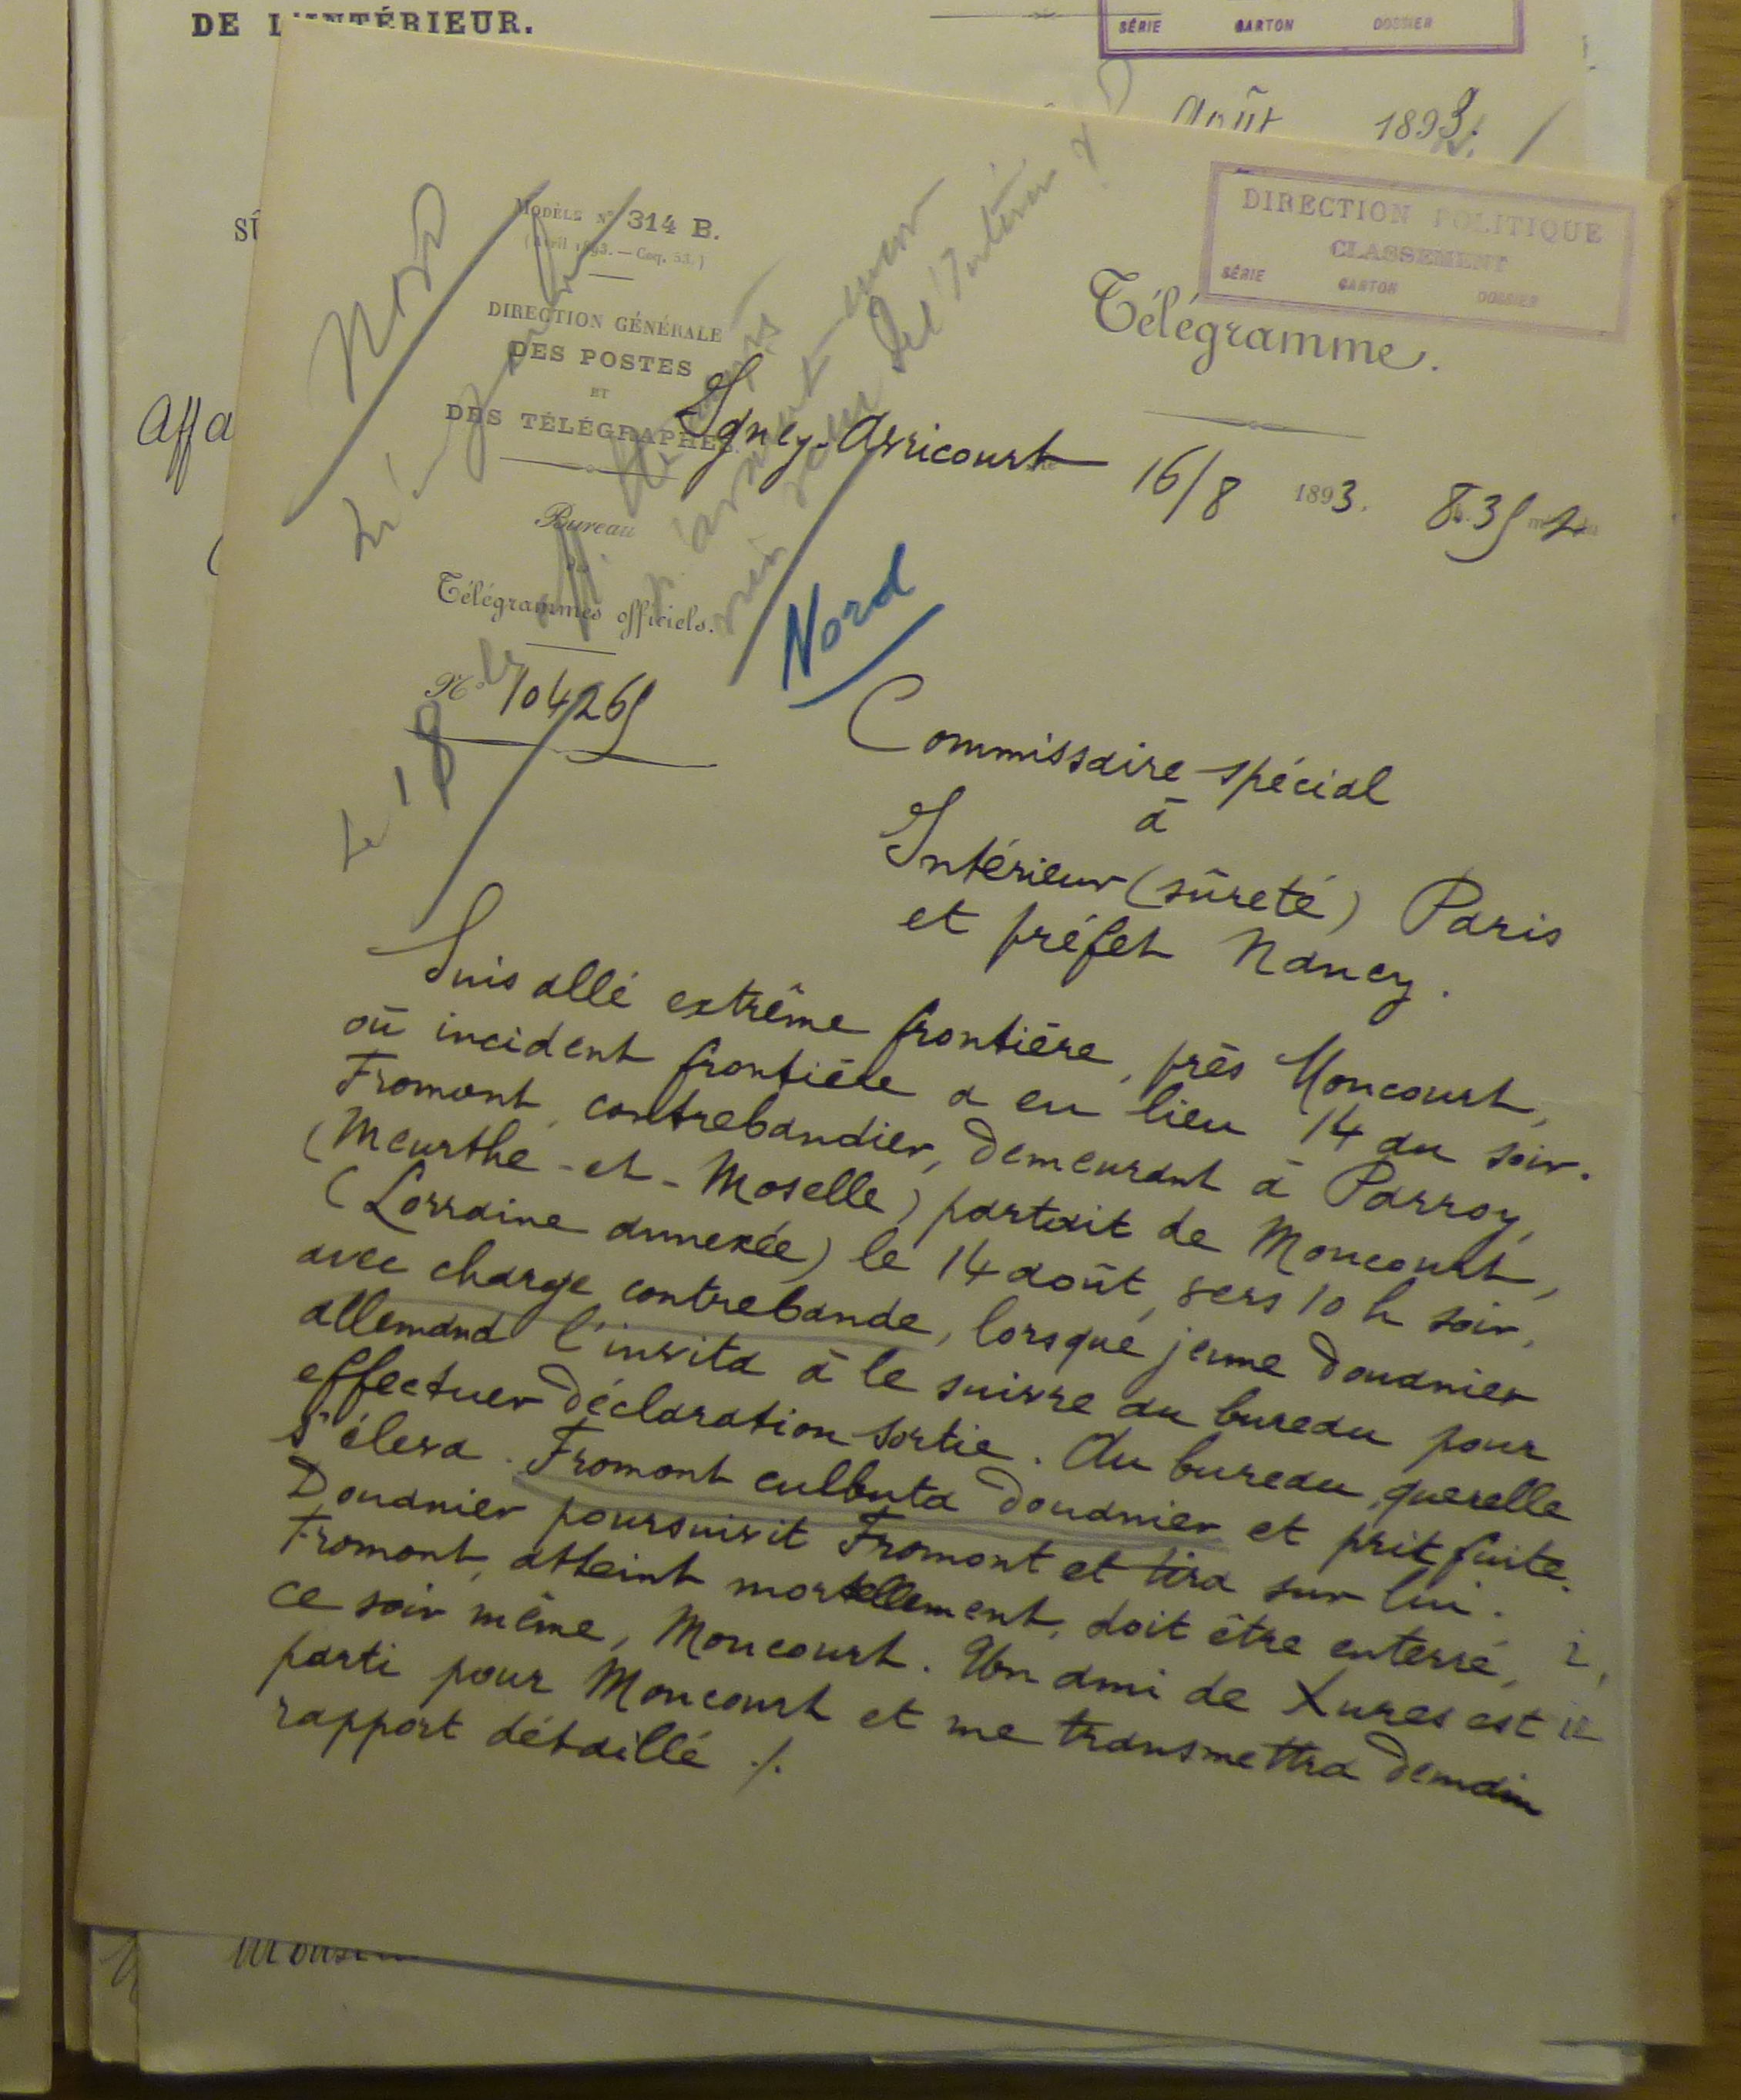 DE L'INTÉRIEUR.
SÉRIE CARTON DOSSIER
Août 1893.
Affa
MODÈLE N° 314 B.
(Avril 1893. — Coq. 53.)
DIRECTION GÉNÉRALE
DES POSTES
ET
DES TÉLÉGRAPHES.
Bureau
des
Télégrammes officiels.
N° 104265
Le 18
DIRECTION POLITIQUE
CLASSEMENT
SÉRIE CARTON DOSSIER
Télégramme.
Igney-Avricourt 16/8 1893. 8h.35
Nord
Commissaire spécial
à
Intérieur (sûreté) Paris
et préfet Nancy.
Suis allé extrême frontière, près Moncourt,
où incident frontière a eu lieu 14 au soir.
Fromont, contrebandier, demeurant à Parroy,
(Meurthe-et-Moselle) partait de Moncourt,
(Lorraine annexée) le 14 août, vers 10 h soir,
avec charge contrebande, lorsque jeune douanier
allemand l'invita à le suivre au bureau pour
effectuer déclaration sortie. Au bureau, querelle
s'éleva. Fromont culbuta douanier et prit fuite.
Douanier poursuivit Fromont et tira sur lui.
Fromont, atteint mortellement, doit être enterré,
ce soir même, Moncourt. Un ami de Xures est
parti pour Moncourt et me transmettra demain
rapport détaillé ./.